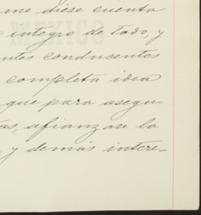 me diese cuenta
integro de todo, y
ntes conducentes
completa idea
que para asegu-
tas, afianzase la
y demás intere-